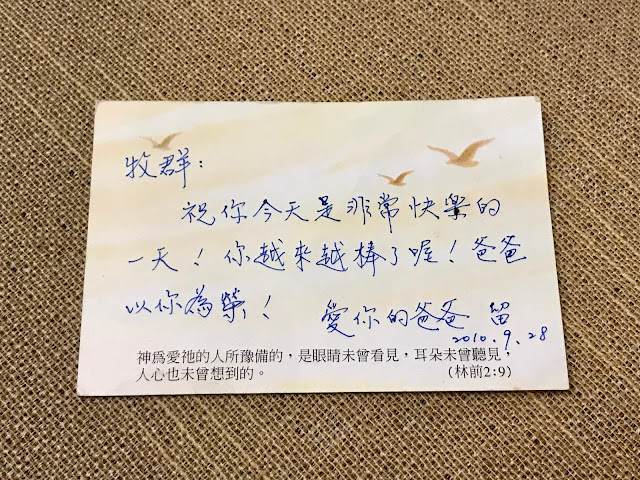 牧群：
祝你今天是非常快樂的
一天！你越來越棒了喔！爸爸
以你為榮！ 愛你的爸爸 留
2010.9.28
神爲愛祂的人所豫備的，是眼睛未曾看見，耳朵未曾聽見，
人心也未曾想到的。 （林前2:9）